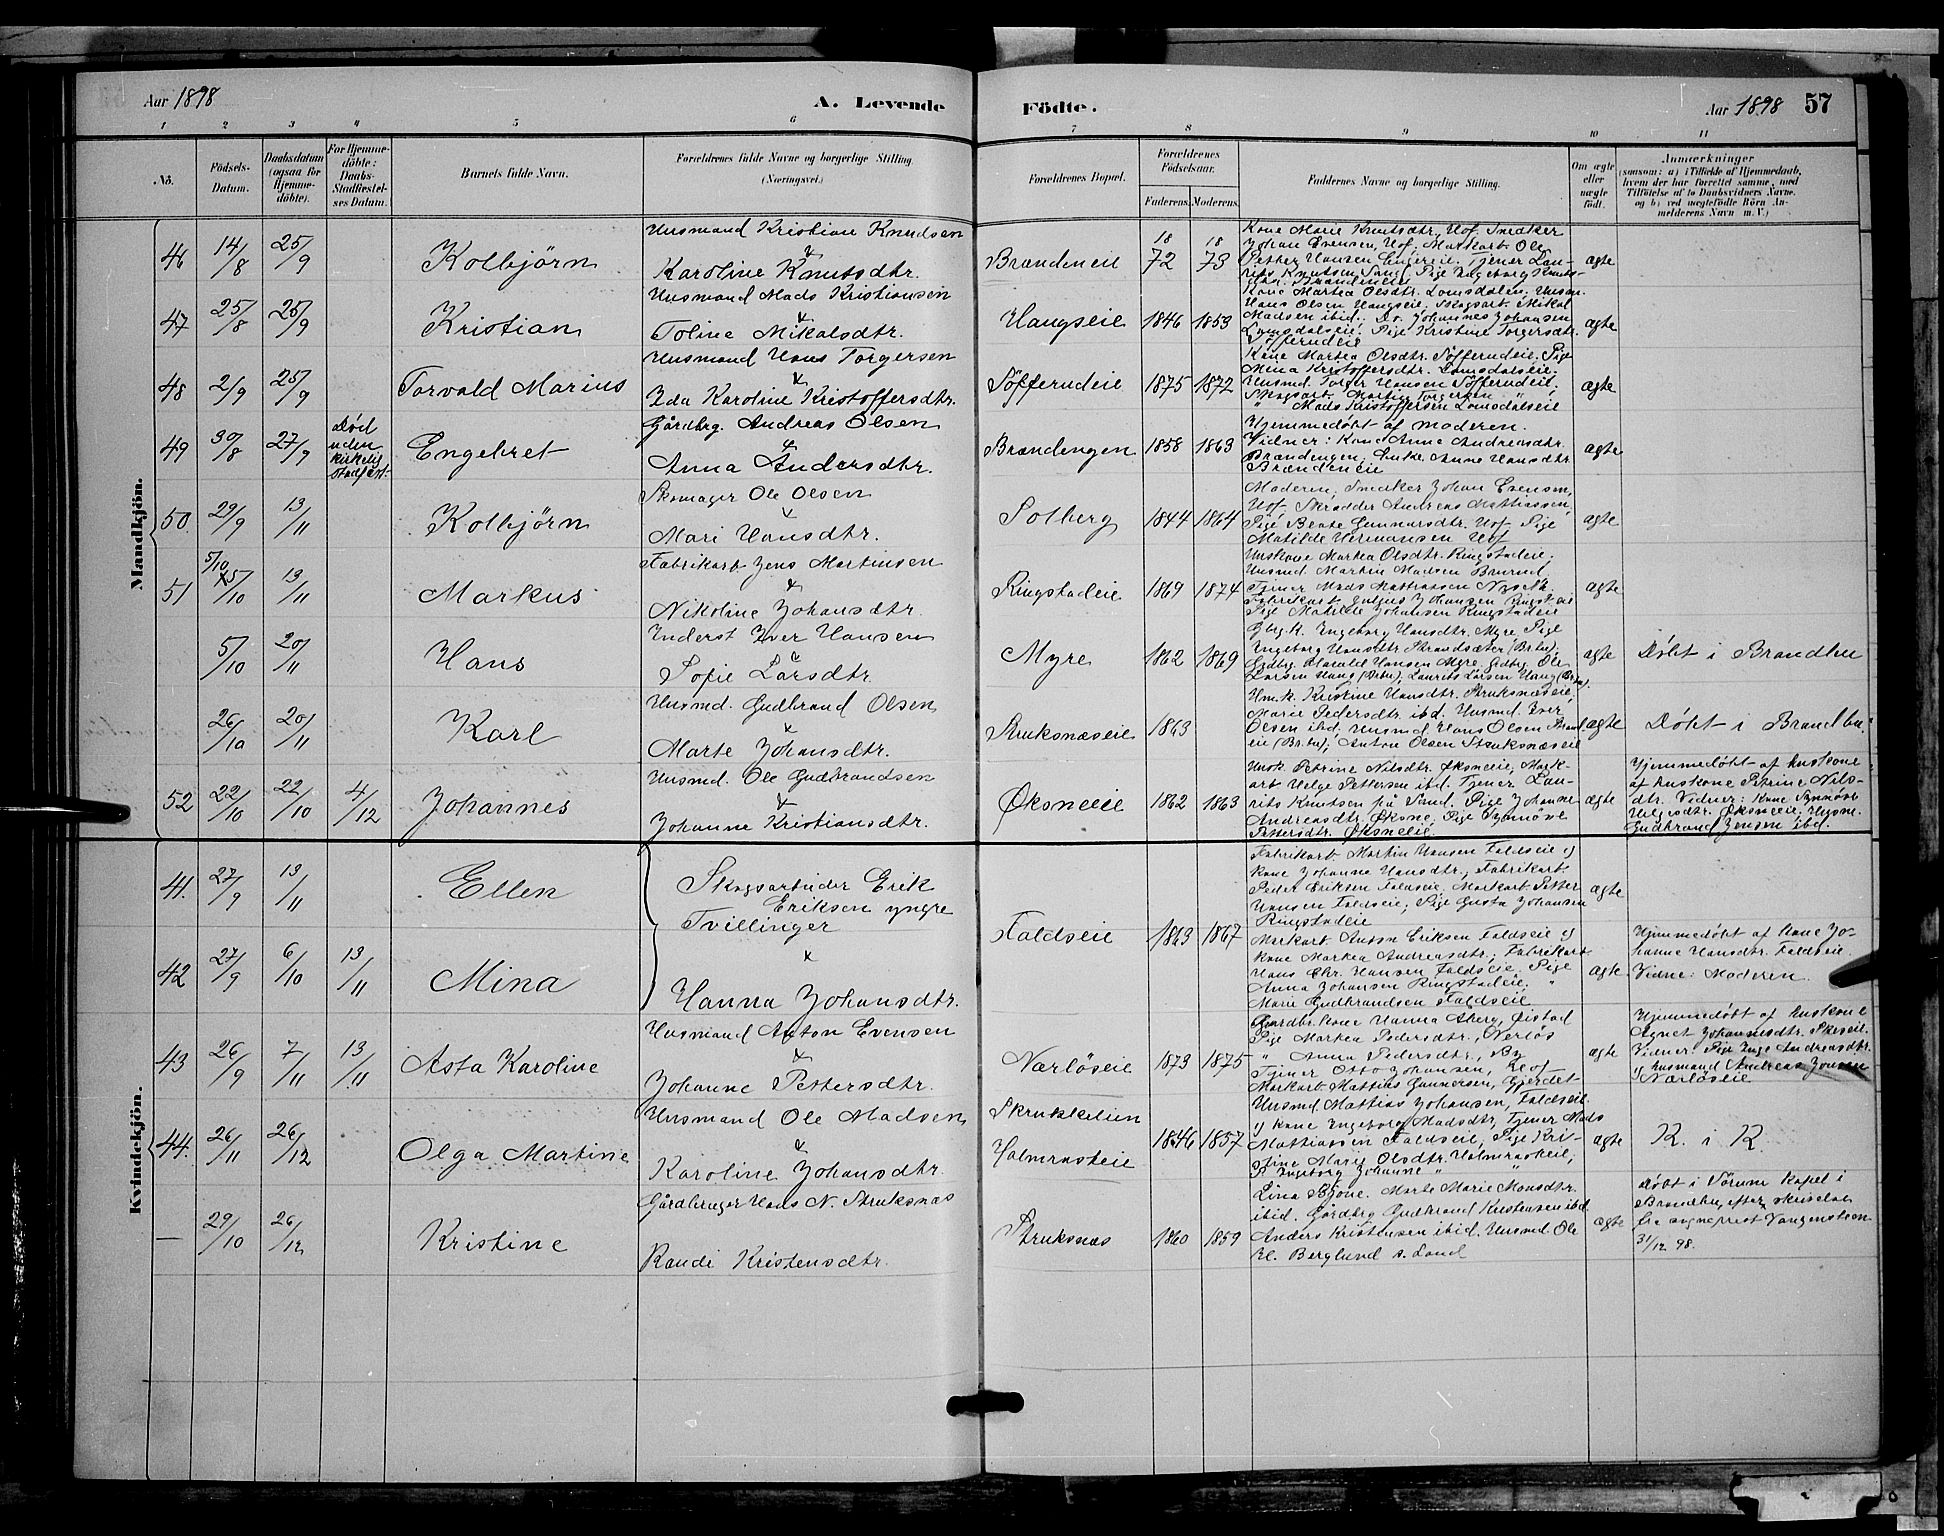 Aar 1898
A. Levende
Födte.
Aar 1898
57
1 2 3 4 5 6 7 8 9 10 11
No.
Födsels-Datum.
Daabsdatum (ogsaa for Hjemme-döbte).
For Hjemme-döbte: Daabs-Stadfæstel-ses Datum.
Barnets fulde Navn.
Forældrenes fulde Navne og borgerlige Stilling (Næringsvei.)
Forældrenes Bopæl.
Forældrenes Födselsaar.
Faderens. Moderens.
Faddernes Navne og borgerlige Stilling.
Om ægte eller uægte födt.
Anmærkninger
(saasom: a) i Tilfælde af Hjemmedaab, hvem der har forrettet samme, med Tilföielse af to Daabsvidners Navne, og b) ved uægtefödte Börn Anmelderens Navn m. V.)
Mandkjön.
46 14/8 25/9 Kolbjörn
Husmand Kristian Knudsen
&
Karoline Knutsdtr.
Brændeneie 18 72 18 73
Kone Marie Knutsdtr, Hof. Snedker
Johan Evensen, Hof. Markarb. Ole
Petter Hansen Tjener Lau-
rits Knutsen Sang. Pige Ingeborg Knuts-
dtr. Brændeneie
ægte
47 25/8 25/9 Kristian
Husmand Mads Kristiansen
&
Toline Mikalsdtr.
Haugseie 1846 1853
Kone Martea Olsdtr. Lomsdalen, Husm.
Hans Olsen Haugseie, Skogsarb. Mikal
Madsen ibid. Do. Johannes Johansen
Lomsdalseie. Pige Kristine Torgersdtr.
Söfferudeie
ægte
48 2/9 25/9 Torvald Marius
Husmand Hans Torgersen
&
Ida Karoline Kristoffersdtr.
Söfferudeie 1875 1872
Kone Martea Olsdtr. Söfferudeie. Pige
Mina Kristoffersdtr. Lomsdalseie.
Husmd. Torger Hansen Söfferudeie.
Skogsarb. Martin Torgersen "
" Mads Kristoffersen Lomsdalseie
ægte
49 30/8 27/9
Död uden kirkelig Stadfæst.
Engebret
Gårdbrg. Andreas Olsen
&
Anna Andersdtr.
Brændengen 1858 1863
Hjemmedöbt af moderen.
Vidner: Kone Anne Andreasdtr.
Brændengen, Enke Anne Hansdtr.
Brændeneie
ægte
50 29/9 13/11 Kolbjörn
Skomager Ole Olsen
&
Mari Hansdtr.
Solberg 1844 1864
Moderen, Snedker Johan Evensen,
Hof, Skrædder Andreas Mathiassen,
Pige Beate Gunnarsdtr. Hof. Pige
Matilde Hermansen Hof
ægte
51 5/10 5/10 13/11 Markus
Fabrikarb. Jens Martinsen
&
Nikoline Johansdtr.
Ringstadeie 1869 1874
Huskone Martea Olsdtr. Ringstadeie,
Husmd. Martin Madsen
Tjener Mads Mathiassen
Fabrikarb. Johansen Ringst.eie
Pige Matilde Johansen Ringstadeie
ægte
5/10 20/11 Hans
Inderst Iver Hansen
&
Sofie Larsdtr.
Myre 1862 1869
Gbrg.k. Ingeborg Hansdtr. Myre, Pige
Ingeborg Hansdtr. Strandsæter (Br.bu).
Gdbrg. Hansen Myre, Gdbrg. Ole
Larsen Haug (Brbu). Laurits Larsen Haug (Brbu).
ægte
Döbt i Brandbu
26/10 20/11 Karl
Husmd. Gudbrand Olsen
&
Marte Johansdtr.
Struksnæseie 1863
Hm.k. Kristine Hansdtr. Struksnæseie,
Marie Pedersdtr. ibd. Husmd. Iver
Olsen ibd, Husmd Hans Olsen
eie (Br.bu), Anton Olsen Struksnæseie
ægte
Döbt i Brandbu
52 22/10 22/10 4/12 Johannes
Husmd. Ole Gudbrandsen
&
Johanne Kristiansdtr.
Öksneeie 1862 1863
Husk. Petrine Nilsdtr. Öksneeie, Mark-
arb. Helge Pettersen ibd. Tjener Lau-
rits Knutsen på Sand, Pige Johanne
Andreasdtr. Öksne, Pige Synnöve
Pettersdtr. Öksneeie
ægte
Hjemmedöbt af huskone
af huskone Petrine Nils-
dtr. Vidner: Kone Synnöve
Helgesdtr. Öksneeie, Husm.
Gudbrand Jensen ibd.
Kvindekjön.
41. 27/9 13/11 Ellen
Skogsarbeider Erik
Eriksen yngre
Tvillinger
&
Hanna Johansdtr.
Faldseie 1863 1867
Fabrikarb. Martin Hansen Faldseie og
Kone Johanne Hansdtr., Fabrikarb.
Peder Eriksen Faldseie, Markarb. Petter
Hansen Faldseie, Pige Gusta Johansen
Ringstadeie
ægte
42 27/9 6/10 13/11 Mina
Markarb. Anton Eriksen Faldseie og
Kone Martea Andreasdtr., Fabrikarb.
Hans Chr. Hansen Faldseie. Pige
Anna Johansen Ringstadeie, "
Marie Gudbrandsen Faldseie
ægte
Hjemmedöbt af Kone Jo-
hanne Hansdtr. Faldseie.
Vidne: Moderen.
43 26/9 7/11 13/11 Asta Karoline
Husmand Anton Evensen
&
Johanne Pettersdtr.
Nærlöseie 1873 1875
Gårdbr.kone Hanna Aberg, Öistad
Pige Martea Pedersdtr., Nerlös
" Anna Pedersdtr., By
Tjener Otto Johansen, Hof
Markarb. Mathias Gunnersen, Gjerdet
ægte
Hjemmedöbt af huskone
Agnet Johannesdtr.
Vidner: Pige Inge Andreasdtr.
og husmand Andreas Jonsen
Nærlöseie
44. 26/11 26/12 Olga Martine
Husmand Ole Madsen
&
Karoline Johansdtr.
Skrukkelien
Holmrasteie
1846 1857
Husmd. Mathias Johansen, Faldseie
og Kone Ingeborg Madsdtr, Tjener Mads
Mathiassen Faldseie, Pige Kri-
stine Marie Olsdtr. Holmrasteie,
P. Ingeborg Johanne " "
ægte
K. i K.
— 29/10 26/12 Kristine
Gårdbruger Hans N. Struksnæs
Randi Kristensdtr.
Struksnæs 1860 1859
Lina Bjone. Marte Marie Monsdtr.
ibid. Gårdbrg. Gudbrand Kristensen ibd
Anders Kristensen ibid. Husmd. Ole
Berglund s. Land
ægte
Döbt i Sörum Kapel i
Brandbu efter skrivelse
fra sogneprest Vangensteen
31/12 98.